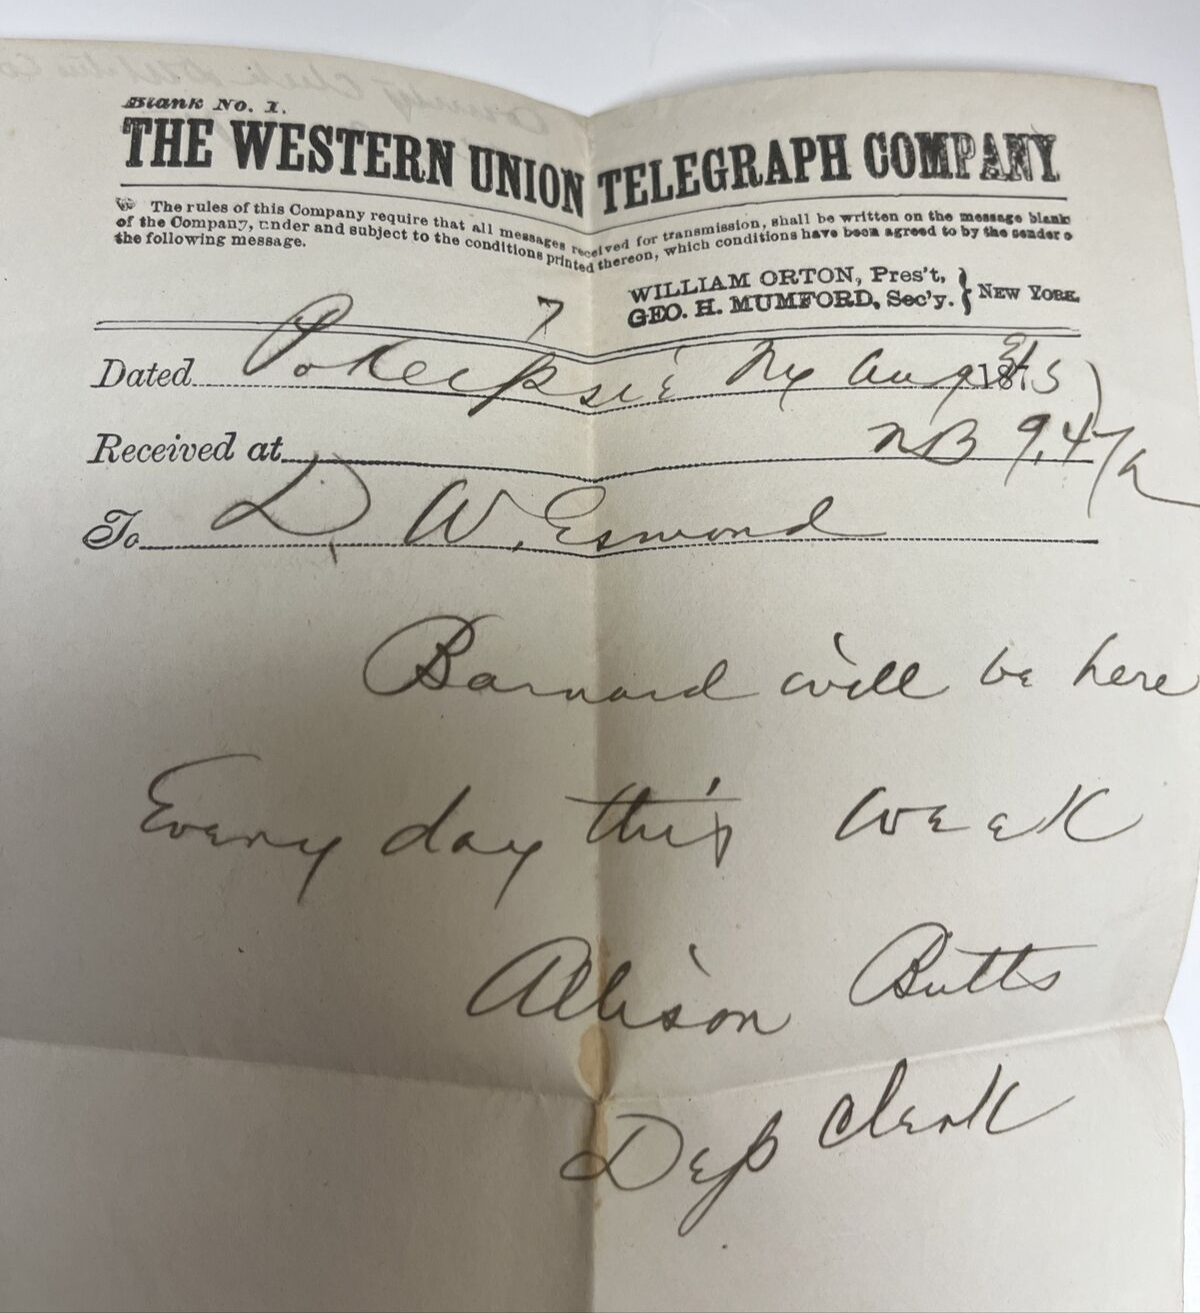 Blank No. 1.
THE WESTERN UNION TELEGRAPH COMPANY
The rules of this Company require that all messages received for transmission, shall be written on the message blank
of the Company, under and subject to the conditions printed thereon, which conditions have been agreed to by the sender o
the following message.
WILLIAM ORTON, Pres't,
GEO. H. MUMFORD, Sec'y. } NEW YORK.
7
Dated Pokeepsie Ny Aug 187
Received at NB 9,47
To D, W, Esmond
Barnard will be here
Every day this week
Allison Butts
Dep Clerk